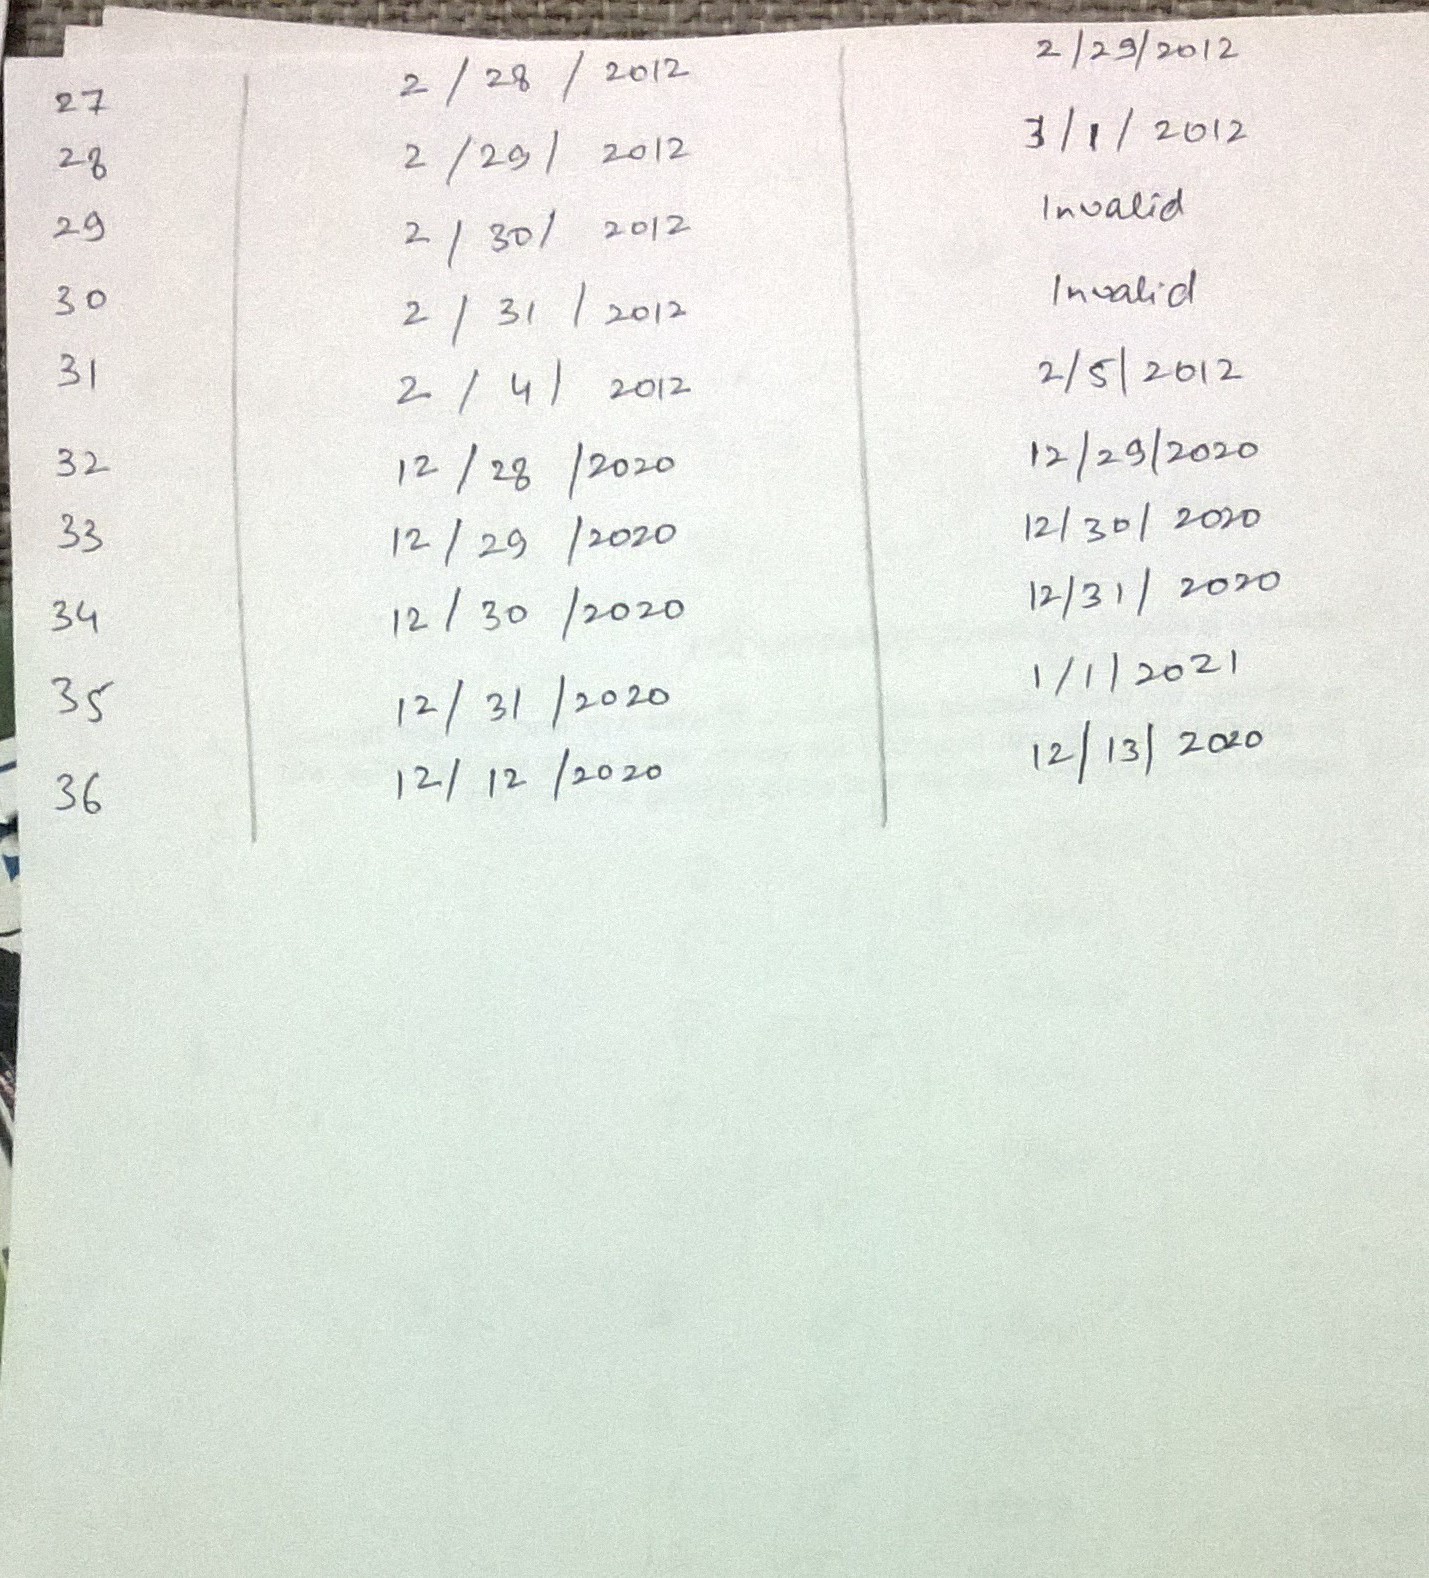 27 2/28/2012 2/29/2012
28 2/29/2012 3/1/2012
29 2/30/2012 Invalid
30 2/31/2012 Invalid
31 2/4/2012 2/5/2012
32 12/28/2020 12/29/2020
33 12/29/2020 12/30/2020
34 12/30/2020 12/31/2020
35 12/31/2020 1/1/2021
36 12/12/2020 12/13/2020